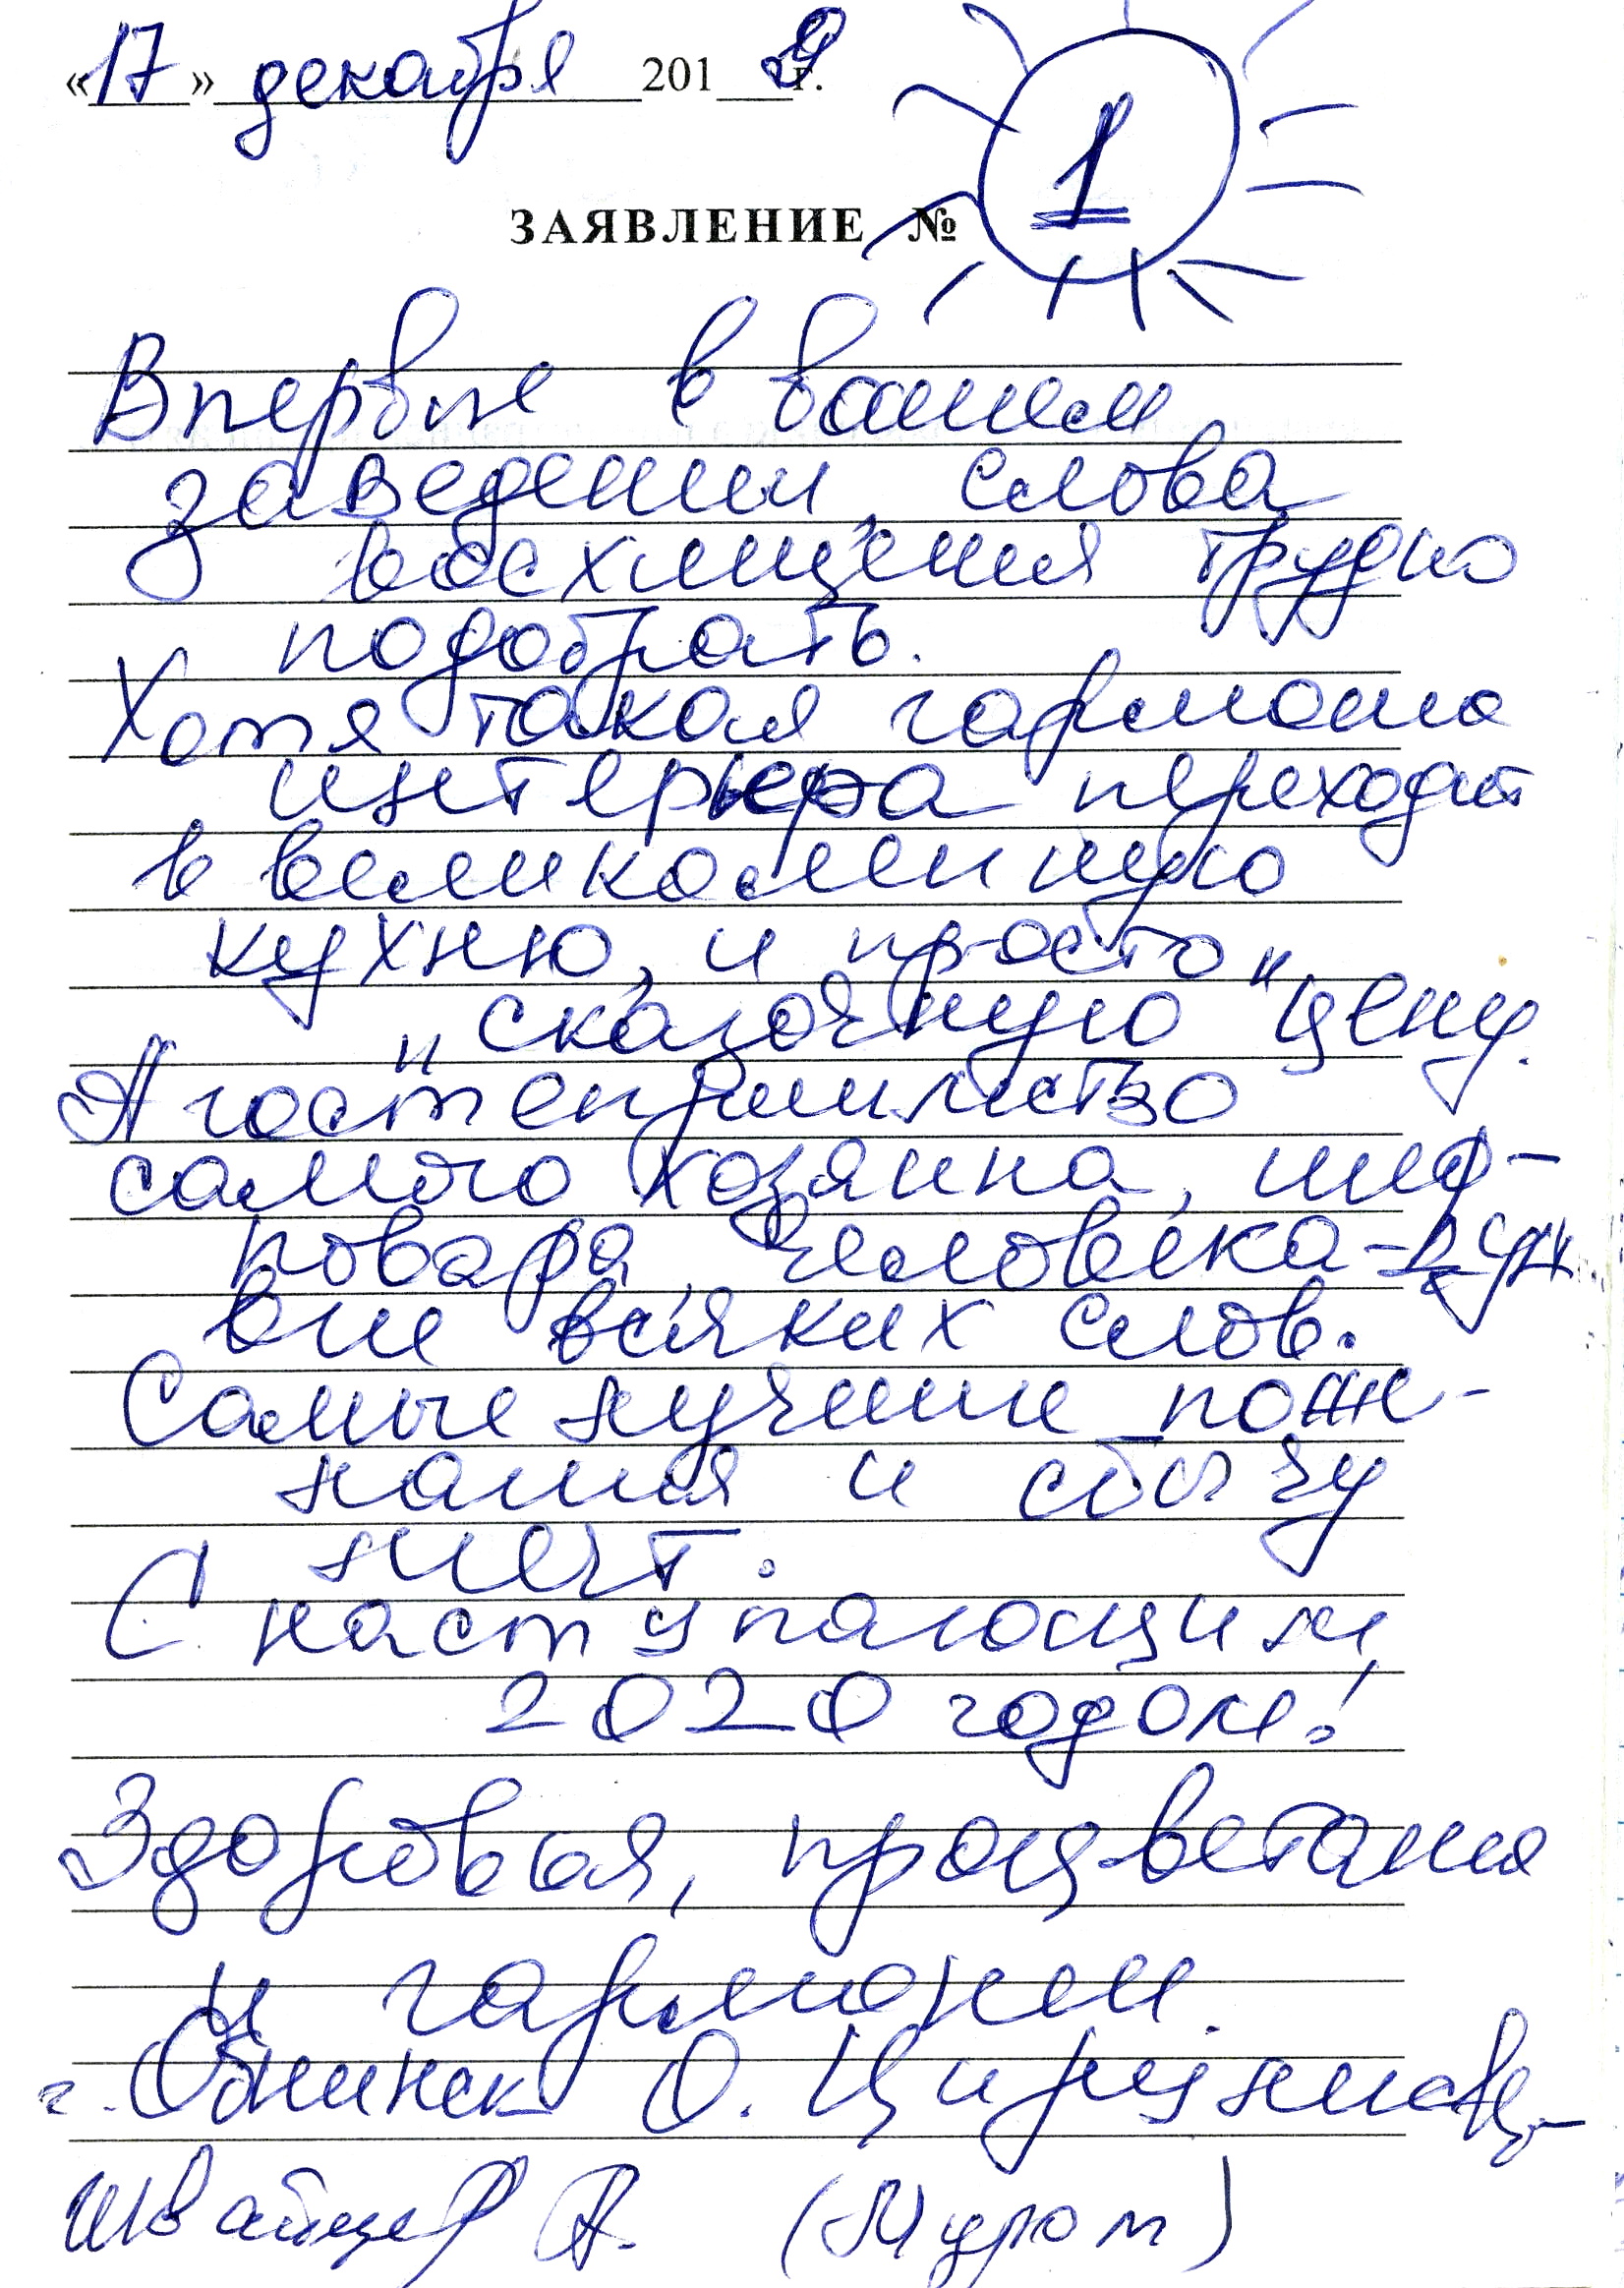 «17» декабря 2019 г.
ЗАЯВЛЕНИЕ № 1
Впервые в вашем
заведении, слова
восхищения трудно
подобрать.
Хотя такая гармония
интерьера переходит
в великолепную
кухню, и просто
„сказочную" цену.
А гостеприимство
самого хозяина, шеф-
повара, человека -
вне всяких слов.
Самые лучшие поже-
лания и сбычу
мечт.
С наступающим
2020 годом!
Здоровья, процветания
и гармонии.
г. Обнинск О.
Швайцер А. (Муром)